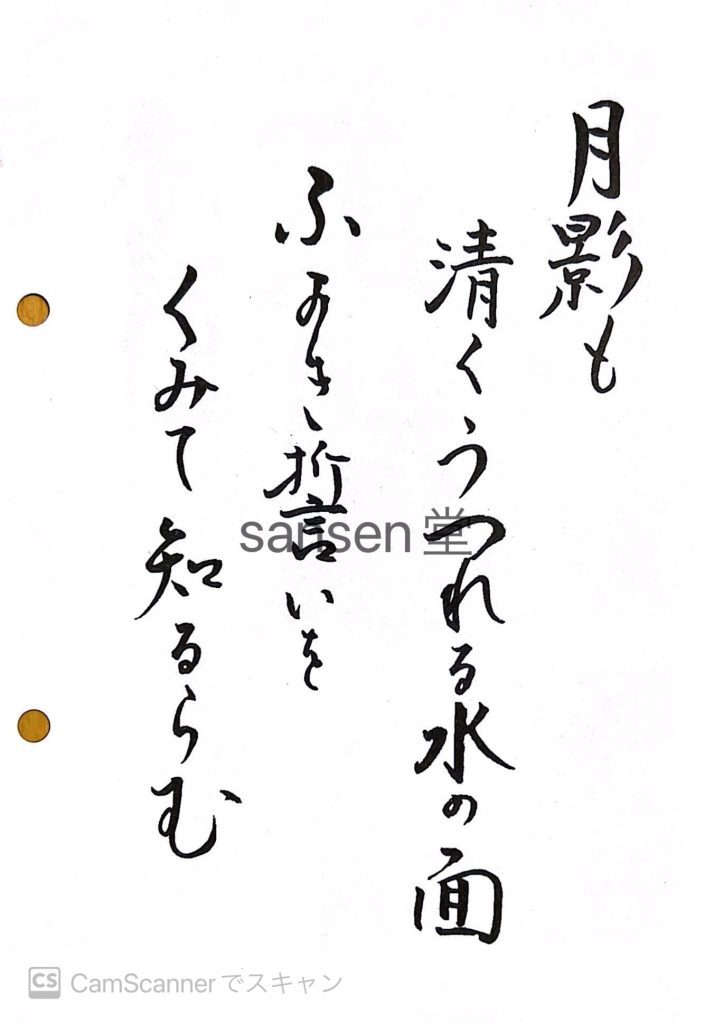 月影も
清くうつれる水の面
ふかき誓いを
くみて知るらむ
sansen堂
CS CamScannerでスキャン